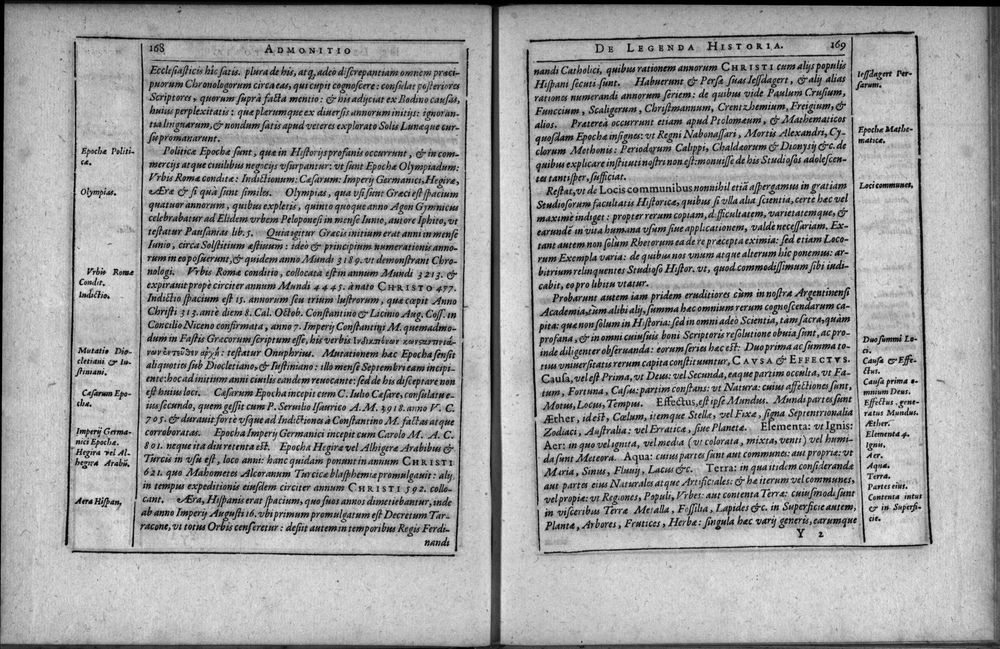 168
ADMONITIO
Ecclesiasticis hîc satis. plura de his, atq, adeo discrepantiam omnem præci-
puorum Chronologorum circa eas, qui cupit cognoscere: consulat posteriores
Scriptores, quorum suprà facta mentio: & his adijciat ex Bodino causas,
huius perplexitatis: quæ plerumque ex diversis annorum initijs: ignoran-
tia linguarum, & nondum satis apud veteres explorato Solis Lunæque cur-
su promanarunt.
Politicæ Epochæ sunt, quæ in Historijs profanis occurrunt, & in com-
mercijs atque civilibus negocijs vsurpantur: vt sunt Epocha Olympiadum:
Vrbis Romæ conditæ: Indictionum: Cæsarum: Imperij Germanici, Hegiræ,
Æræ & si quà sunt similes. Olympias, qua vsi sunt Græci est spacium
quatuor annorum, quibus expletis, quinto quoque anno Agon Gymnicus
celebrabatur ad Elidem vrbem Peloponesi in mense Iunio, autore Iphito, vt
testatur Pausanias lib. 5. Quia igitur Græcis initium erat anni in mense
Iunio, circa Solstitium æstiuum: ideò & principium numerationis anno-
rum in eo posuerunt, & quidem anno Mundi 3189. vt demonstrant Chro-
nologi. Vrbis Romæ conditio, collocata est in annum Mundi 3213. &
expirauit propè circiter annum Mundi 4445. à nato CHRISTO 477.
Indictio spacium est 15. annorum seu trium lustrorum, quæ cœpit Anno
Christi 313. ante diem 8. Cal. Octob. Constantino & Licinio Aug. Coss. in
Concilio Niceno confirmata, anno 7. Imperij Constantini M. quemadmo-
dum in Fastis Græcorum scriptum esse, his verbis
testatur Onuphrius. Mutationem hæc Epocha sensit
aliquotiès sub Diocletiano, & Iustiniano: illo mense Septembri eam incipi-
ente: hoc ad initium anni ciuilis eandem reuocante: sed de his disceptare non
est huius loci. Cæsarum Epocha incepit cum C. Iulio Cæsare, consulatu e-
ius secundo, quem gessit cum P. Seruilio Isaurico A. M. 3918. anno V. C.
705. & durauit fortè vsque ad Indictionẽ à Constantino M. factas atque
corroboratas. Epocha Imperij Germanici incepit cum Carolo M. A. C.
801. neque ita diu retenta est. Epocha Hegira vel Alhigera Arabibus &
Turcis in vsu est, loco anni: hanc quidam ponunt in annum CHRISTI
621. quo Mahometes Alcoranum Turcicæ blasphemiæ promulgauit: alij
in tempus expeditionis eiusdem circiter annum CHRISTI 592. collo-
cant. Æra, Hispanis erat spacium, quo suos annos dimetiebantur, inde
ab anno Imperij Augusti 16. vbi primum promulgatum est Decretum Tar-
racone, vt totius Orbis censeretur: desiit autem in temporibus Regis Ferdi-
nandi
Epochæ Politi-
cæ.
Olympias.
Vrbis Romæ
Condit.
Indictio.
Mutatio Dio-
cletiani & Iu-
stiniani.
Cæsarum Epo-
cha.
Imperij Germa-
nici Epocha.
Hegira vel Al-
hegira Arabũ.
Aera Hispan,
DE LEGENDA HISTORIA.
169
nandi Catholici, quibus rationem annorum CHRISTI cum alijs populis
Hispani secuti sunt. Habuerunt & Persæ suas Iessdagert, & alij alias
rationes numerandi annorum seriem: de quibus vide Paulum Crusium,
Funccium, Scaligerum, Christmannum, Crentzhemium, Freigium, &
alios. Præterea occurrunt etiam apud Ptolomæum, & Mathematicos
quosdam Epochæ insignes: vt Regni Nabonassari, Mortis Alexandri, Cy-
clorum Methonis: Periodorum Calippi, Chaldæorum & Dionysij &c. de
quibus explicare instituti nostri non est: monuisse de his Studiosos adolescen-
tes tantisper, sufficiat.
Restat, vt de Locis communibus nonnihil etiã aspergamus in gratiam
Studiosorum facultatis Historicæ, quibus si vlla alia scientia, certè hæc vel
maximè indiget: propter rerum copiam, difficultatem, varietatemque, &
earundẽ in vita humana vsum siue applicationem, valdè necessariam. Ex-
tant autem non solùm Rhetorum ea de re præcepta eximia: sed etiam Loco-
rum Exempla varia: de quibus nos vnum atque alterum hîc ponemus: ar-
bitrium relinquentes Studioso Histor. vt, quod commodissimum sibi iudi-
cabit, eo pro libitu vtatur.
Probarunt autem iam pridem eruditiores cùm in nostra Argentinensi
Academia, tùm alibi alij, summa hæc omnium rerum cognoscendarum ca-
pita: quæ non solum in Historia: sed in omni adeò Scientia, tàm sacra, quàm
profana, & in omni cuiusuis boni Scriptoris resolutione obuia sunt, ac pro-
inde diligenter obseruanda: eorum series hæc est: Duo prima ac summa to-
tius vniuersitatis rerum capita constituuntur, CAUSA & EFFECTVS.
Causa, vel est Prima, vt Deus: vel Secunda, eaque partim occulta, vt Fa-
tum, Fortuna, Casus: partim constans: vt Natura: cuius affectiones sunt,
Motus, Locus, Tempus. Effectus, est ipse Mundus. Mundi partes sunt
Æther, id est, Cœlum, itemque Stellæ, vel Fixæ, signa Septentrionalia
Zodiaci, Australia: vel Erraticæ, siue Planetæ. Elementa: vt Ignis:
Aer: in quo vel ignita, vel media (vt colorata, mixta, venti) vel humi-
da sunt Meteora. Aqua: cuius partes sunt aut communes: aut propriæ: vt
Maria, Sinus, Fluuij, Lacus &c. Terra: in qua itidem considerandæ
aut partes eius Naturales atque Artificiales: & hæ iterum vel communes,
vel propiæ: vt Regiones, Populi, Vrbes: aut contenta Terræ: cuiusmodi sunt
in visceribus Terræ Metalla, Fossilia, Lapides &c. in Superficie autem,
Plantæ, Arbores, Frutices, Herbæ: singula hæc varij generis, earumque
Y 2
Iessdagert Per-
sarum.
Epochæ Mathe-
maticæ.
Loci communes,
Duo summi Lo-
ci,
Causa & Effe-
ctus.
Causa prima o-
mnium Deus.
Effectus: gene-
ratus Mundus.
Æther.
Elementa 4.
Ignis.
Aer.
Aqua.
Terra.
Partes eius.
Contenta intus
& in Superfi-
cie.